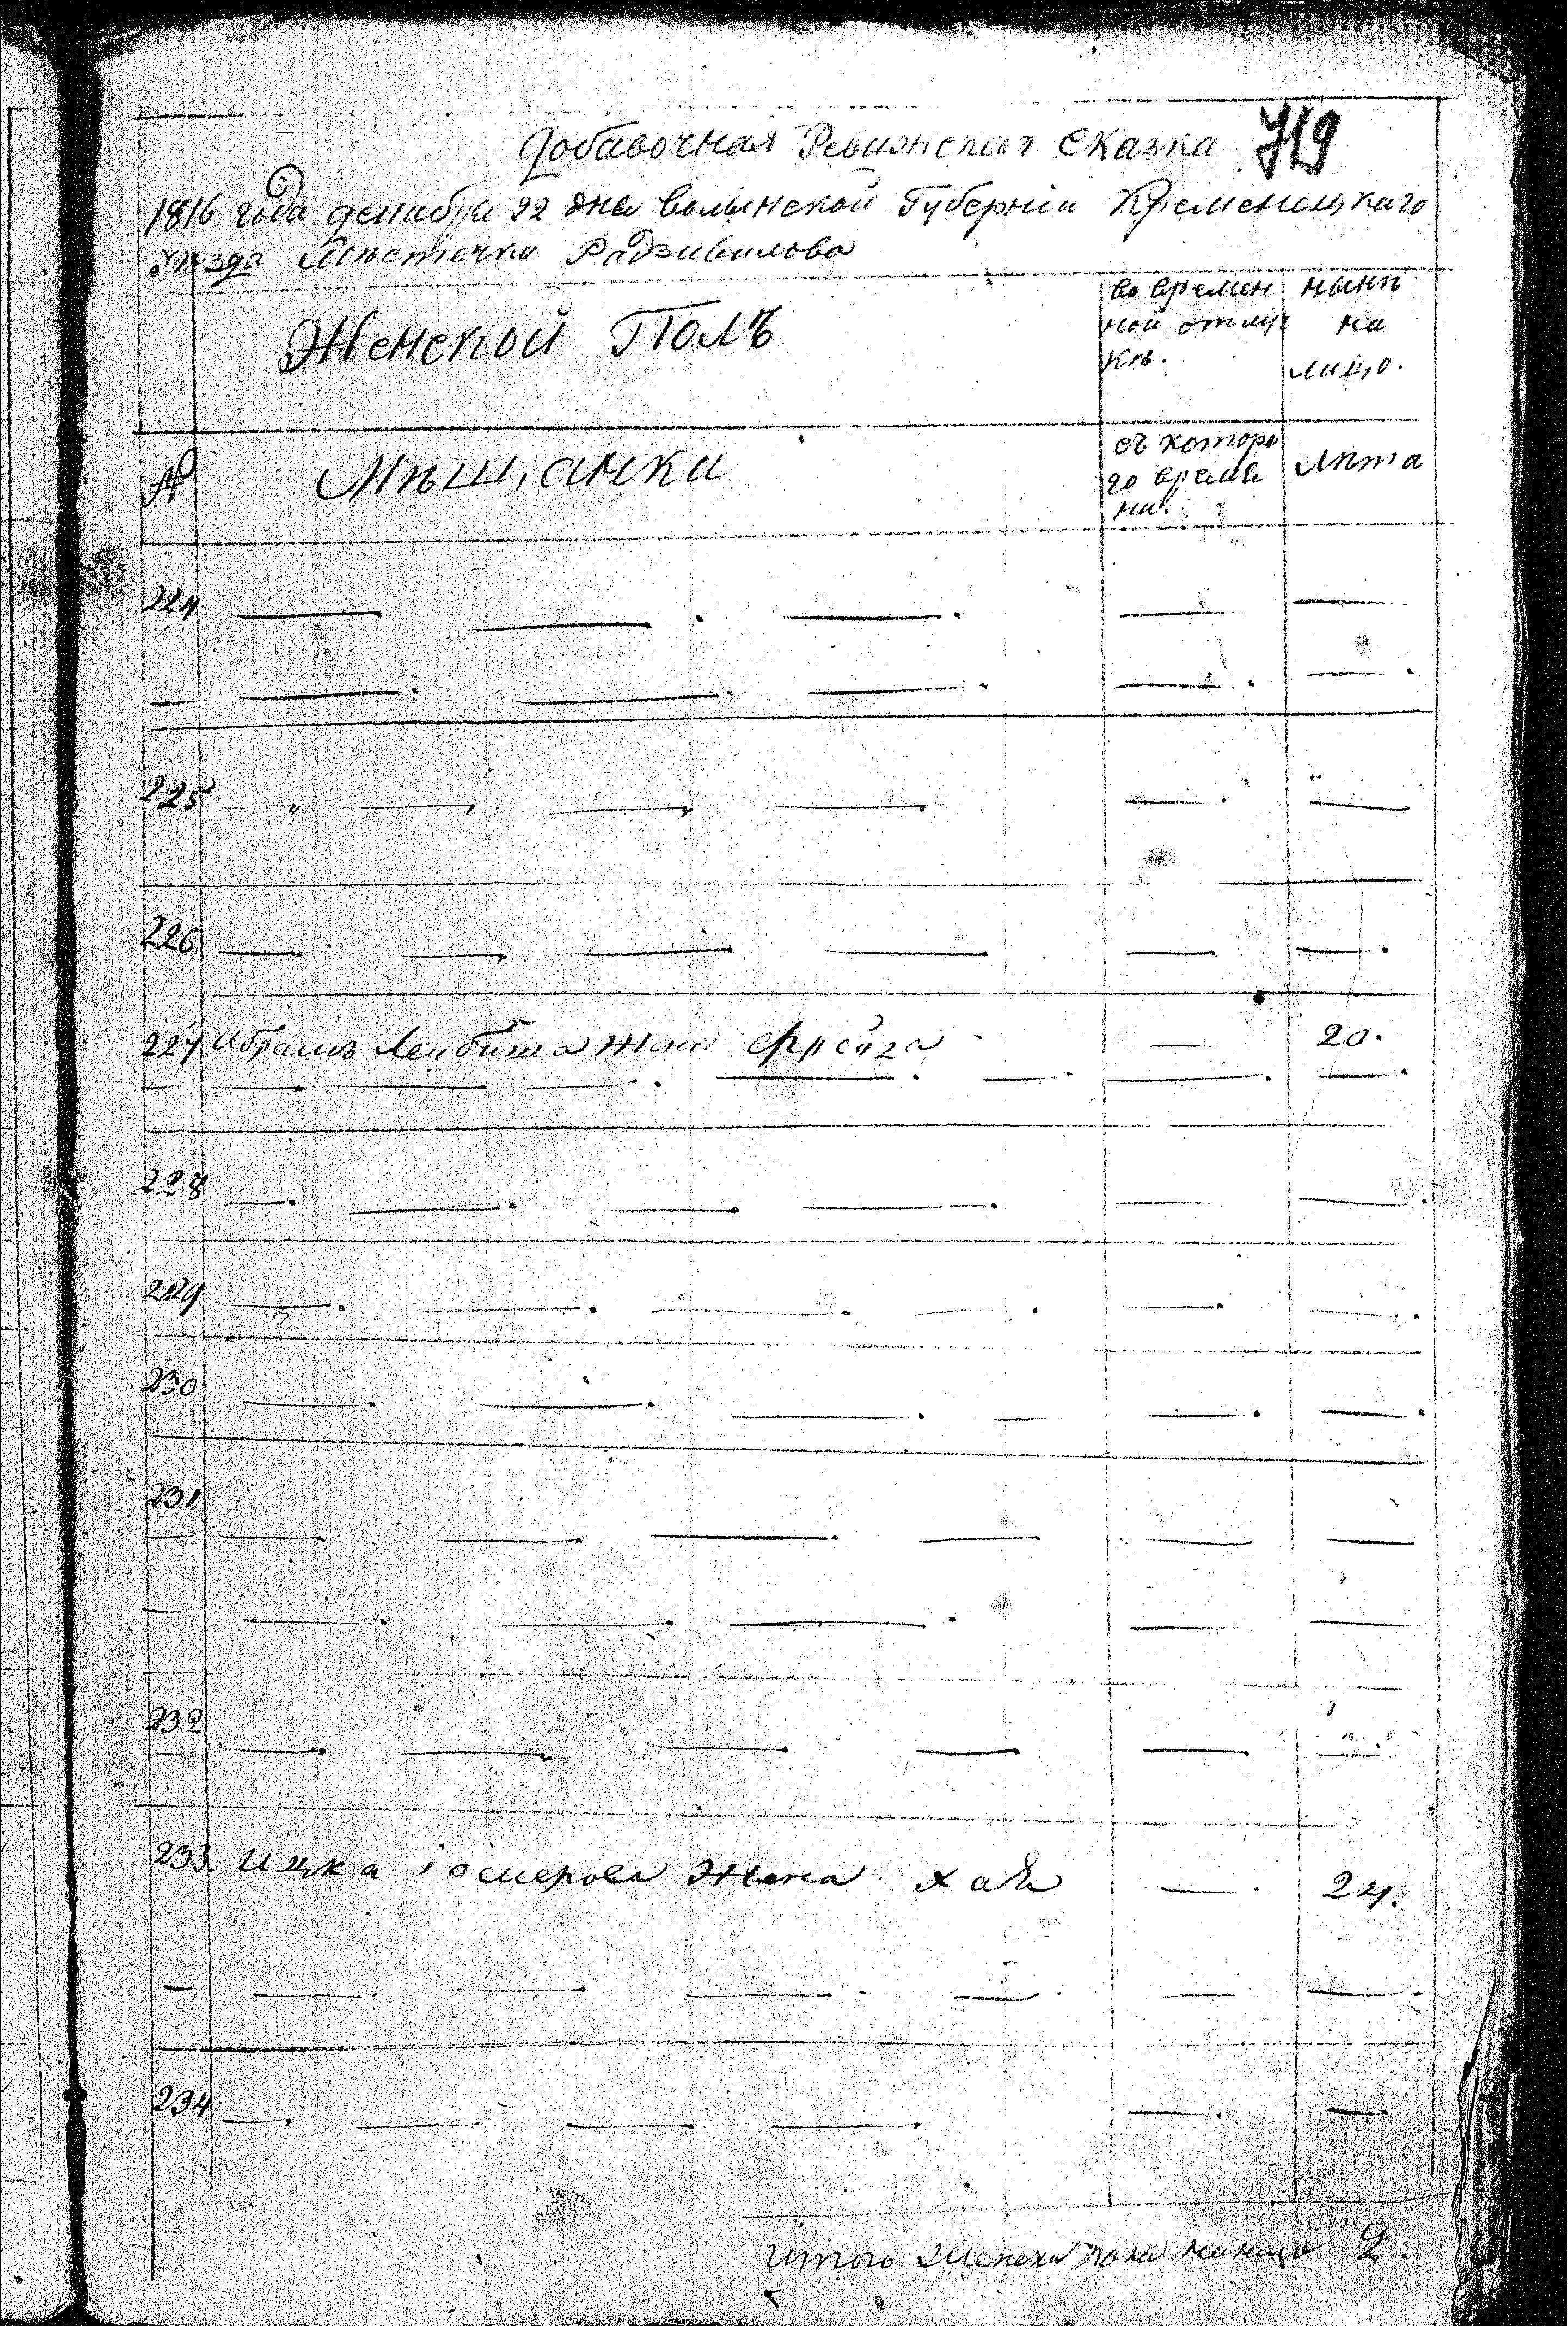 Добавочная Ревизская Сказка 719
1816 года декабря 22 дня волынской Губерніи Кременецкаго
уѣзда Мѣстечка Радзивилова
Женской Полъ
во времен
ной отлуч
кѣ.
нынѣ
на
лицо.
№
Мѣщанки
съ котора
го време
ни.
Лѣта
224
225
226
227 Абрамъ Лейбиша жена Фрейга — 20.
228
229
230
231
232
233. Ицка жена Хая — 24.
234
Итого женска пола налицо 2.